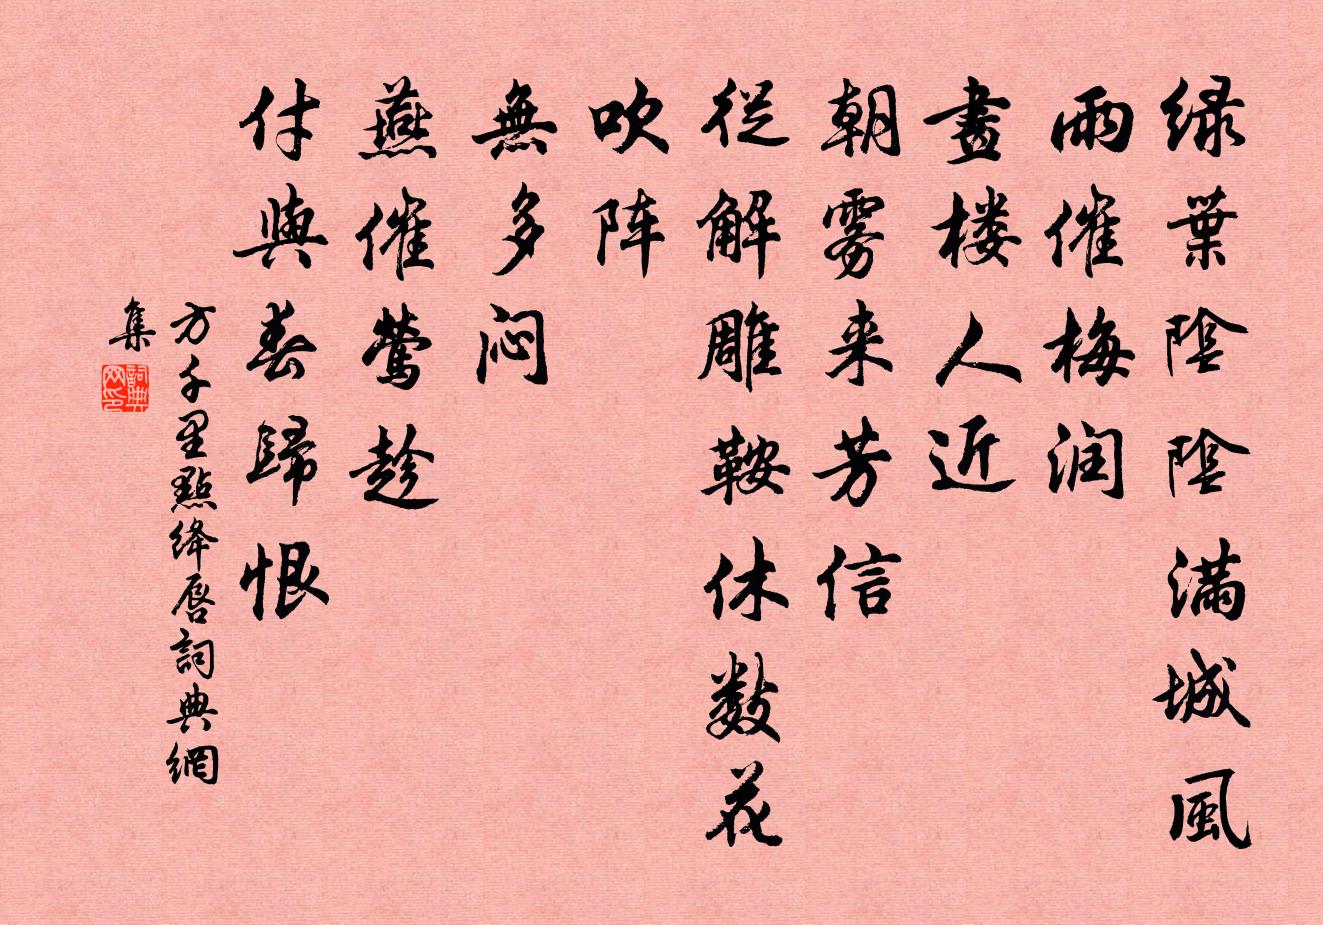 緑葉陰陰满城風
雨催梅润
畫楼人近
朝雾来芳信
從解雕鞍休数花
吹阵
無多闷
燕催莺趁
付與春歸恨
方千里點绛唇詞典網
集
詞典網印